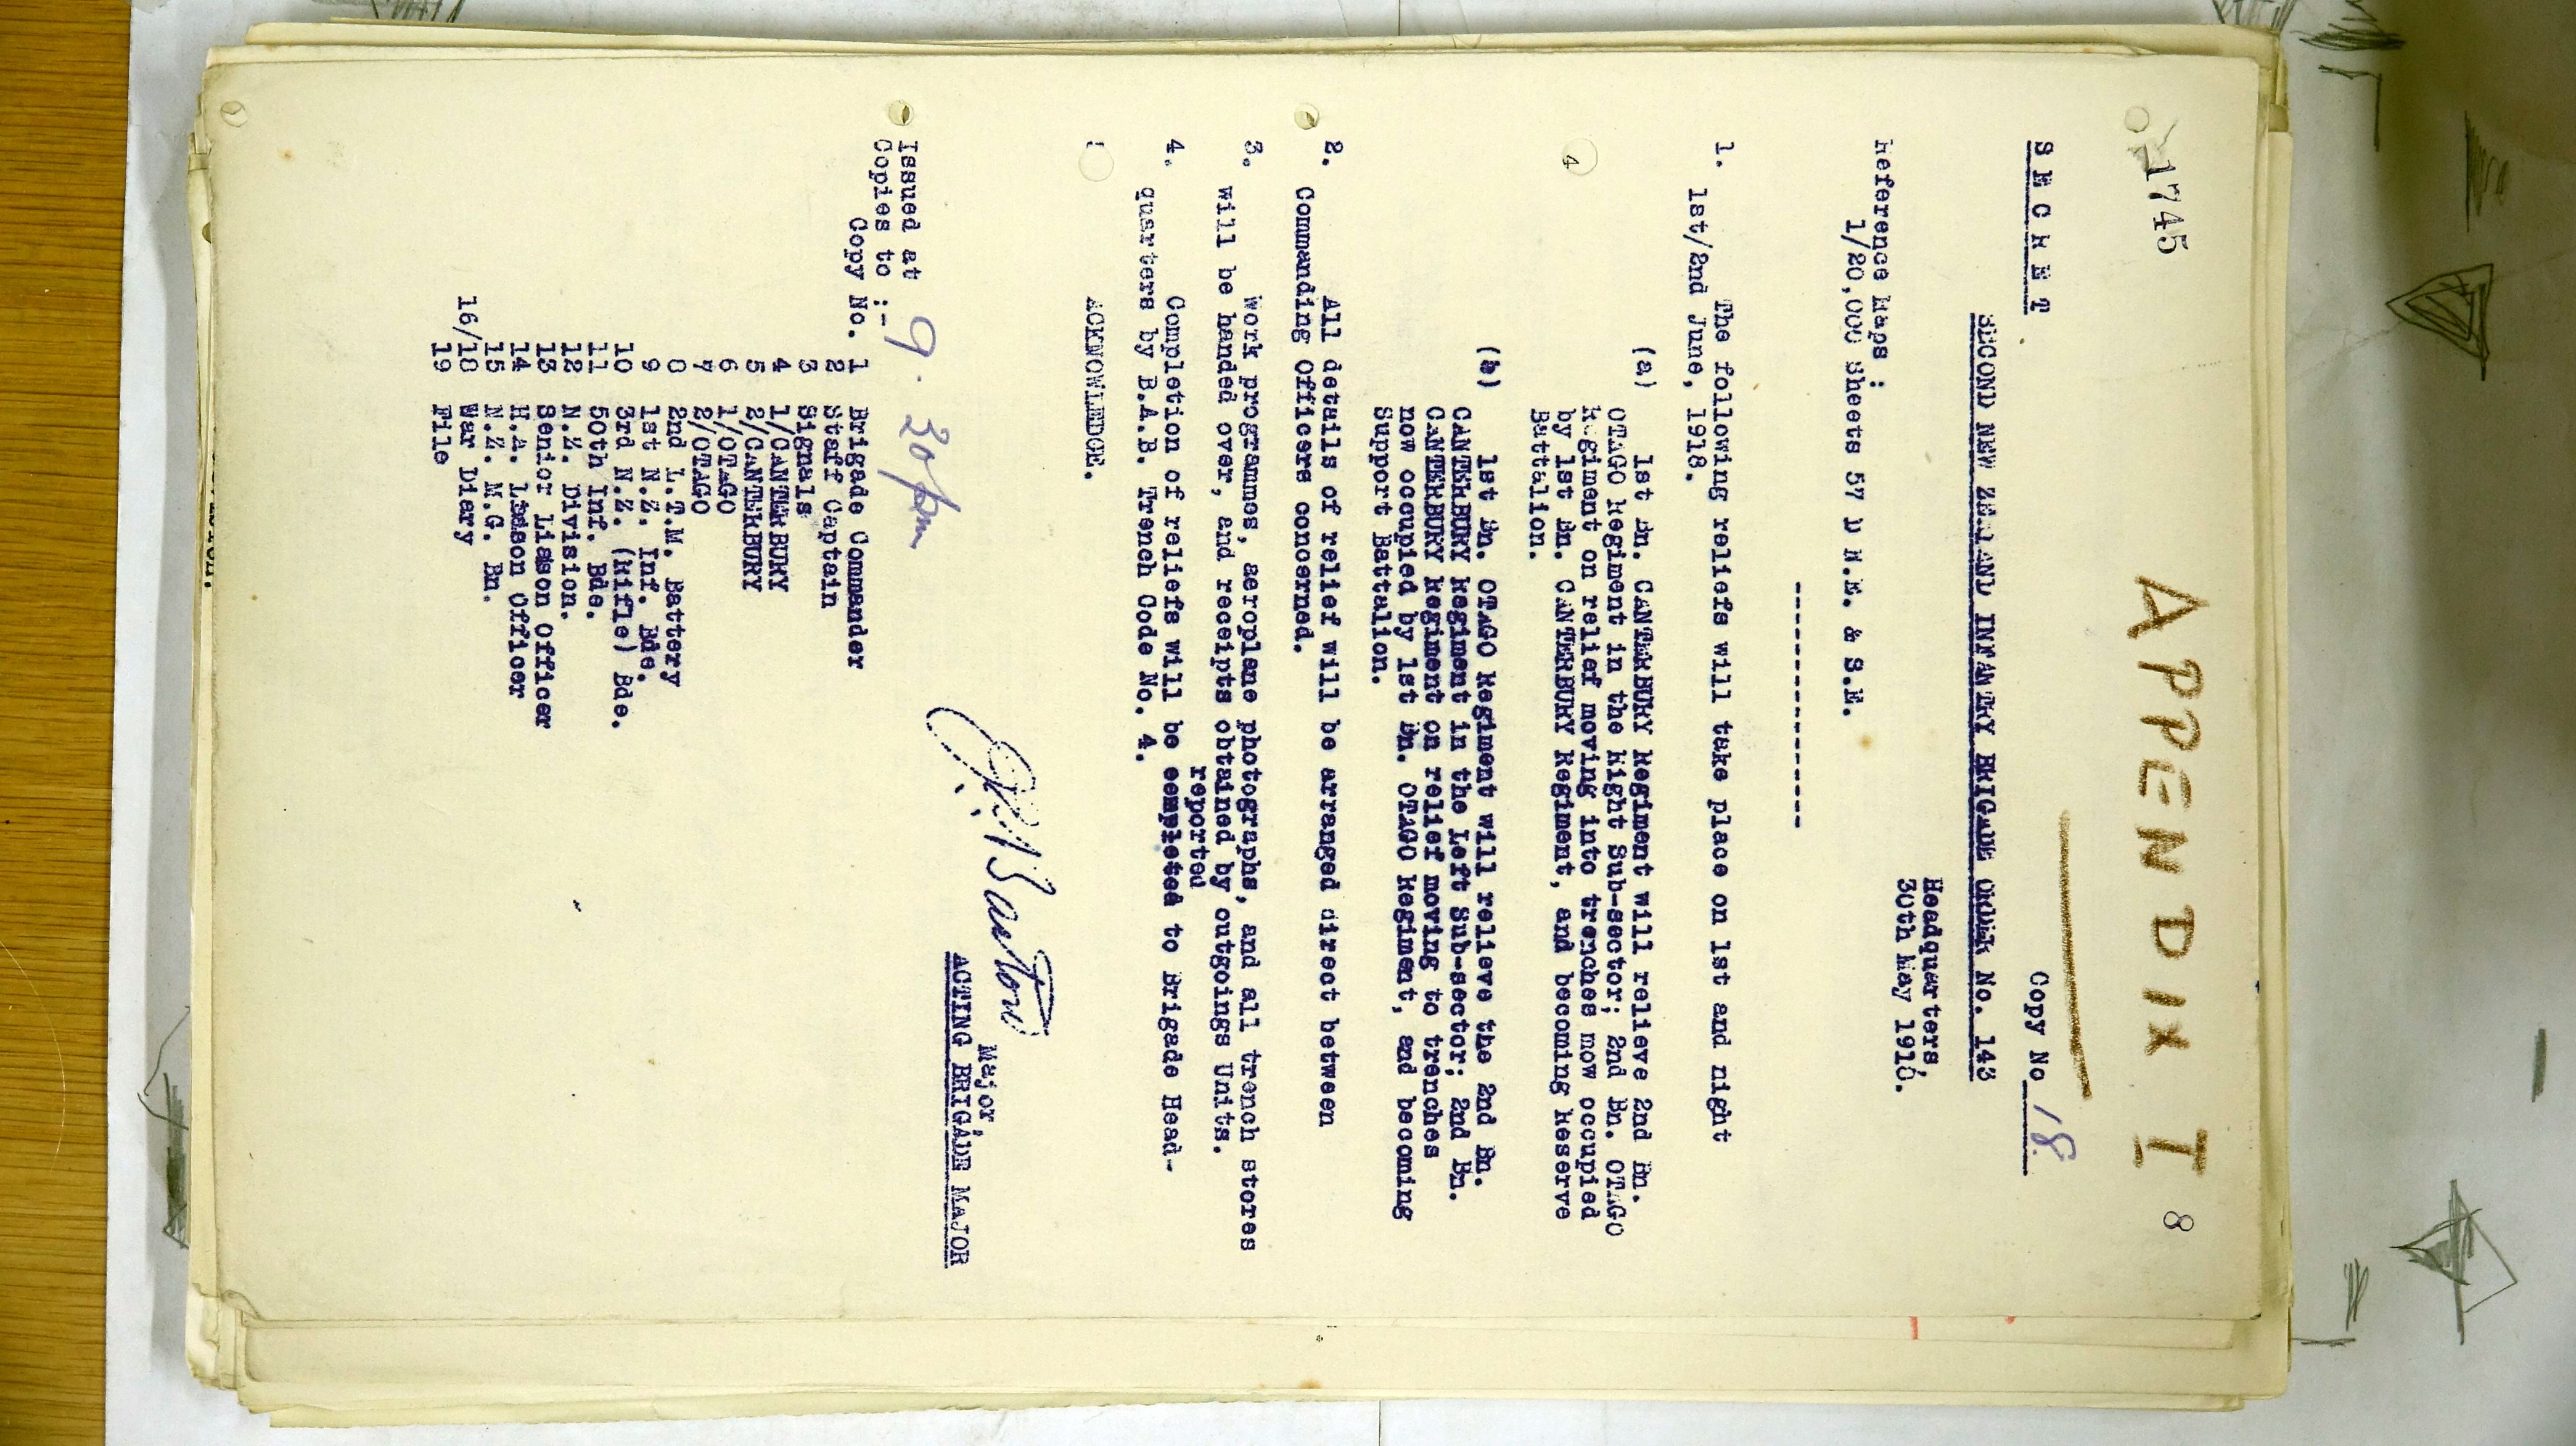 1745
APPENDIX I
8
SECRET
Copy No 18.
SECOND NEW ZEALAND INFANTRY BRIGADE ORDER No. 143
Headquarters,
30th May 1918.
Reference Maps :
1/20,000 Sheets 57 D N.E. & S.E.
-----------------
1. The following reliefs will take place on 1st and night
1st/2nd June, 1918.
(a) 1st Bn. CANTERBURY Regiment will relieve 2nd Bn.
OTAGO Regiment in the Right Sub-sector; 2nd Bn. OTAGO
Regiment on relief moving into trenches now occupied
by 1st Bn. CANTERBURY Regiment, and becoming Reserve
Battalion.
4
(b) 1st Bn. OTAGO Regiment will relieve the 2nd Bn.
CANTERBURY Regiment in the Left Sub-sector; 2nd Bn.
CANTERBURY Regiment on relief moving to trenches
now occupied by 1st Bn. OTAGO Regiment, and becoming
Support Battalion.
2. All details of relief will be arranged direct between
Commanding Officers concerned.
3. Work programmes, aeroplane photographs, and all trench stores
will be handed over, and receipts obtained by outgoings Units.
reported
4. Completion of reliefs will be completed to Brigade Head-
quarters by B.A.B. Trench Code No. 4.
ACKNOWLEDGE.
Major,
ACTING BRIGADE MAJOR
Issued at 9.30pm
Copies to :-
Copy No. 1 Brigade Commander
2 Staff Captain
3 Signals
4 1/CANTERBURY
5 2/CANTERBURY
6 1/OTAGO
7 2/OTAGO
8 2nd L.T.M. Battery
9 1st N.Z. Inf. Bde.
10 3rd N.Z. (Rifle) Bde.
11 50th Inf. Bde.
12 N.Z. Division.
13 Senior Liason Officer
14 H.A. Liason Officer
15 N.Z. M.G. Bn.
16/18 War Diary
19 File